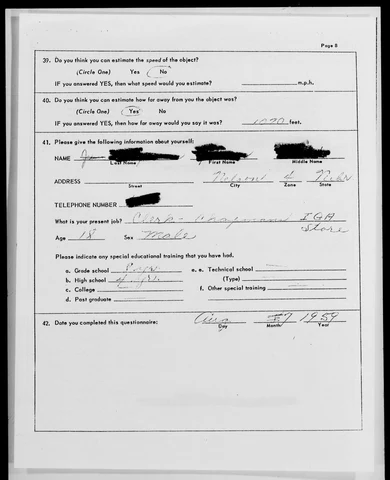 Page 8
39. Do you think you can estimate the speed of the object?
(Circle One) Yes No
IF you answered YES, then what speed would you estimate? m.p.h.
40. Do you think you can estimate how far away from you the object was?
(Circle One) Yes No
IF you answered YES, then how far away would you say it was? feet.
41. Please give the following information about yourself:
NAME
Last Name First Name Middle Name
ADDRESS Nelson Nebr
Street City Zone State
TELEPHONE NUMBER
What is your present job? Clerk - Chapman IGA
Store
Age 18 Sex Male
Please indicate any special educational training that you have had.
a. Grade school e. Technical school
b. High school 4 yrs. (Type)
c. College f. Other special training
d. Post graduate
42. Date you completed this questionnaire: Aug 1959
Day Month Year